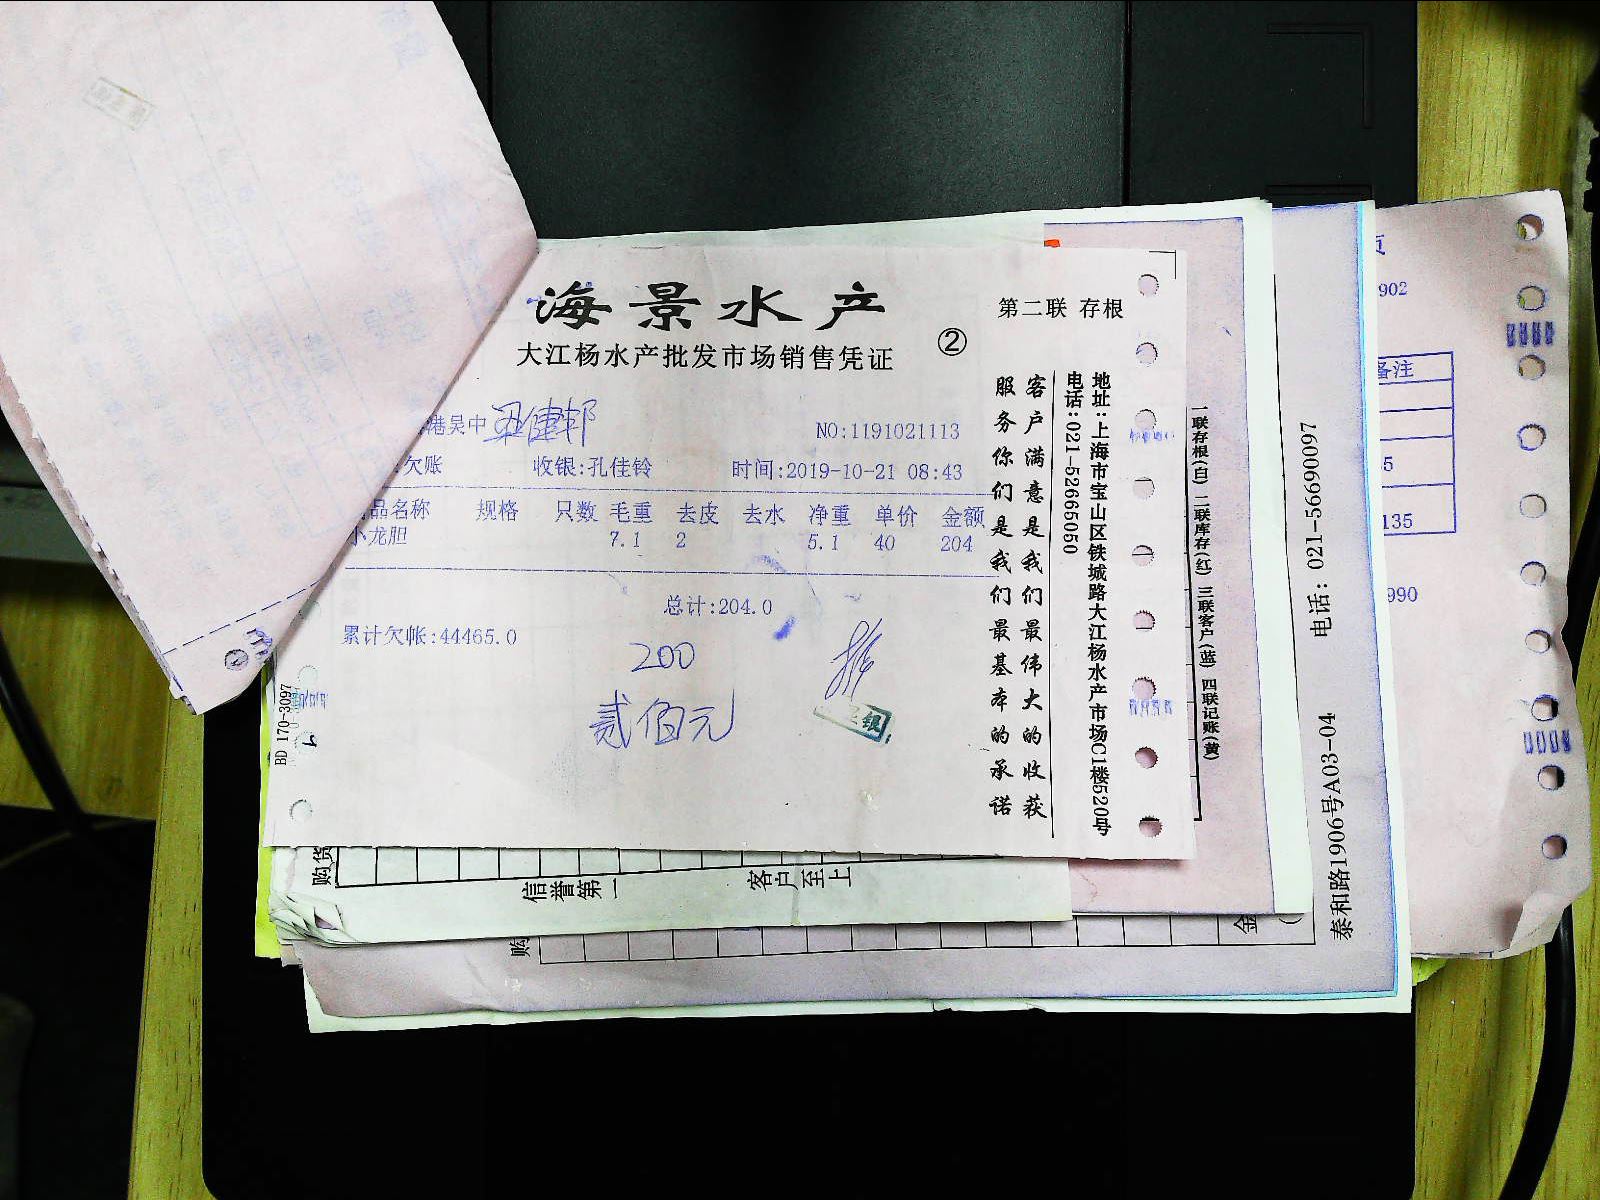 海景水产
大江杨水产批发市场销售凭证
②
第二联 存根
港吴中
NO:1191021113
欠账 收银:孔佳铃 时间:2019-10-21 08:43
品名称 规格 只数 毛重 去皮 去水 净重 单价 金额
小龙胆 7.1 2 5.1 40 204
总计:204.0
累计欠帐:44465.0
200
贰佰元
客户满意是我们最伟大的收获
服务你们是我们最基本的承诺
地址:上海市宝山区铁城路大江杨水产市场C1楼520号
电话:021-52665050
一联存根(白) 二联库存(红) 三联客户(蓝) 四联记账(黄)
BD 170-3097
购货
信誉第一
客户至上
购
金
电话: 021-56690097
泰和路1906号A03-04
页
902
备注
5
135
990